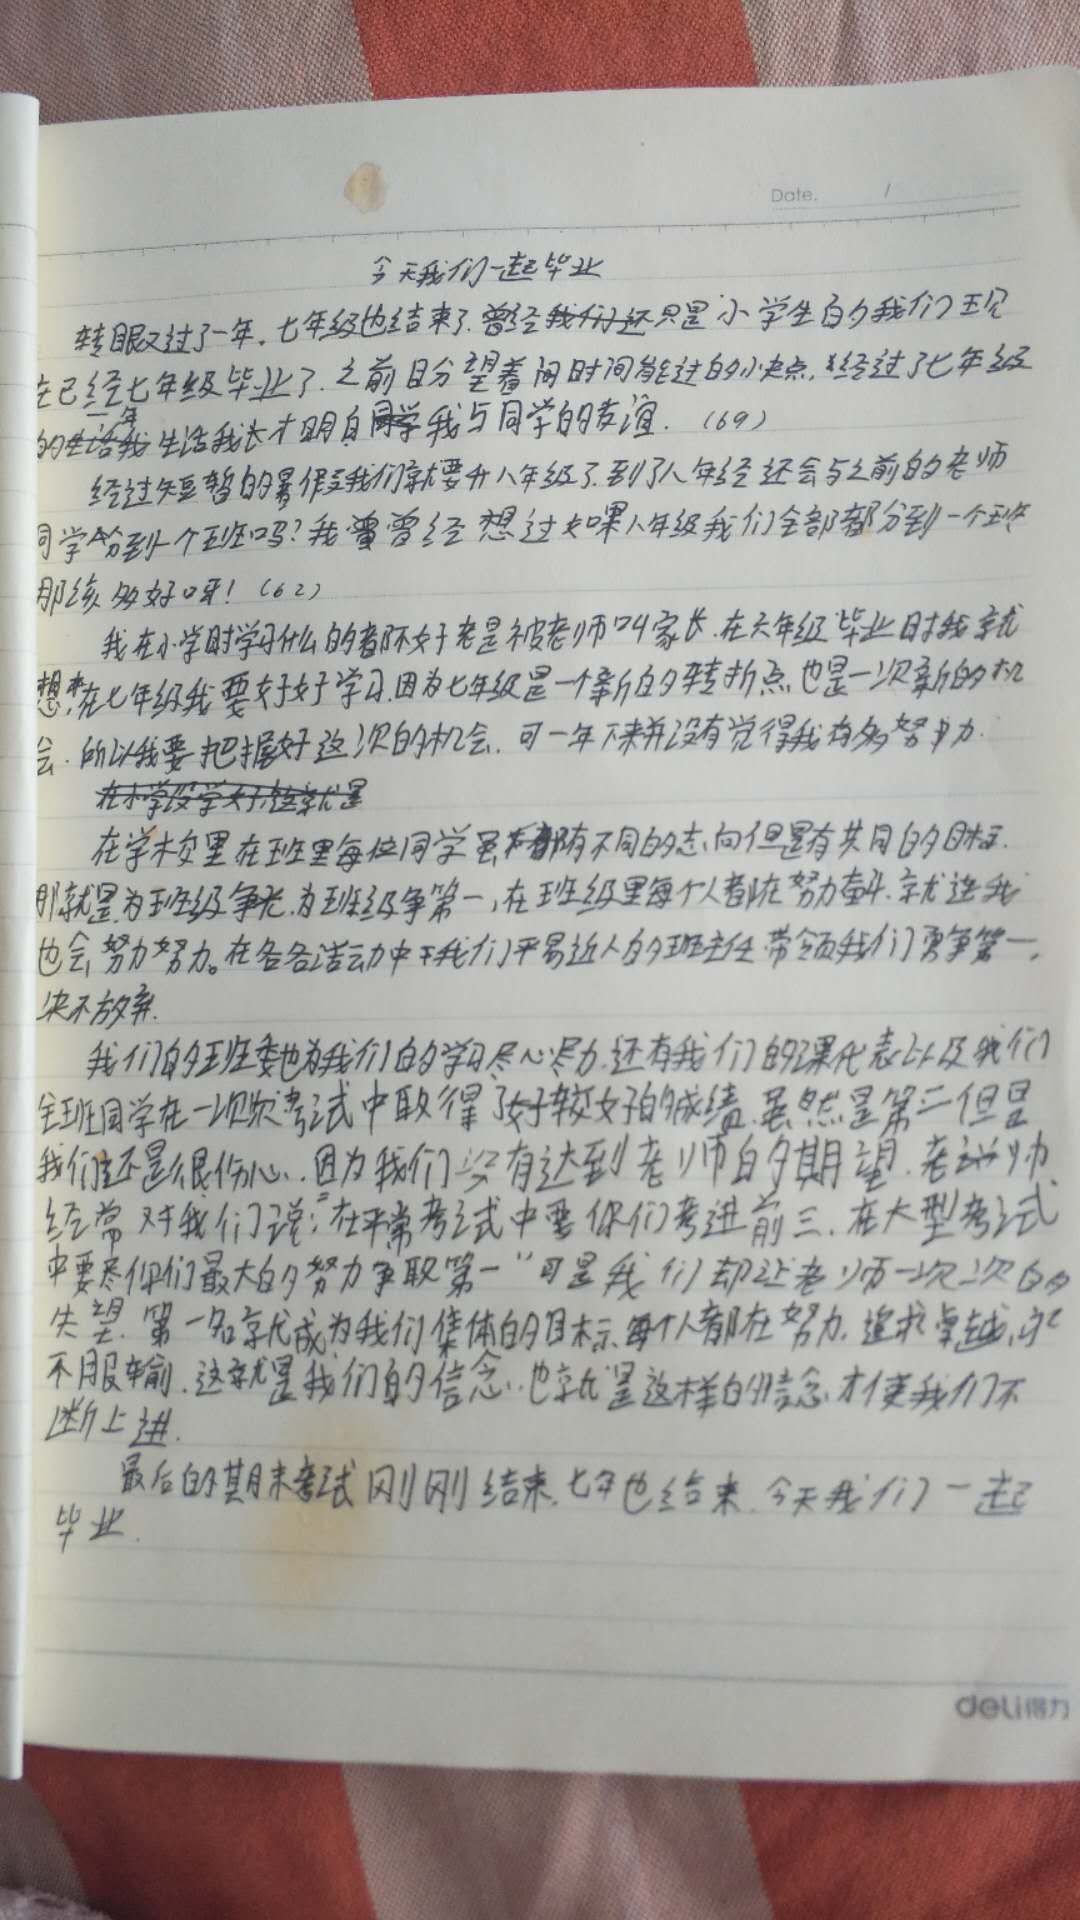 Date. /
今天我们一起毕业
转眼又过了一年,七年级也结束了.曾经我们还只是小学生的我们现
在已经七年级毕业了.之前盼望着时间能过的小快点,经过了七年级
一年
的生活我生活我才明白同学我与同学的友谊.(69)
经过短暂的暑假我们就要升八年级了.到了八年经还会与之前的老师
同学分到一个班吗?我曾经想过如果八年级我们全部都分到一个班
那该多好呀!(62)
我在小学时学习什么的都不好老是被老师叫家长.在六年级毕业时我就
想,在七年级我要好好学习.因为七年级是一个新的转折点.也是一次新的机
会.所以我要把握好这次的机会.可一年下来并没有觉得我有多努力.
在小学没学好,这就是
在学校里在班里每位同学虽都有不同的志向但是有共同的目标.
那就是为班级争光.为班级争第一,在班级里每个人都在努力奋斗.就连我
也会努力努力。在各各活动中我们平易近人的班主任带领我们勇争第一,
决不放弃.
我们的班委也为我们的学习尽心尽力.还有我们的课代表以及我们
全班同学在一次次考试中取得了好较好的成绩.虽然是第二但是
我们还是很伤心.因为我们没有达到老师的期望.老师
经常对我们说:"在平常考试中要你们考进前三.在大型考试
中要尽你们最大的努力争取第一"可是我们却让老师一次次的
失望.第一名就成为我们集体的目标.每个人都在努力.追求卓越,永
不服输.这就是我们的信念.也就是这样的信念才使我们不
断上进.
最后的期末考试刚刚结束.七年也结束.今天我们一起
毕业.
deli得力